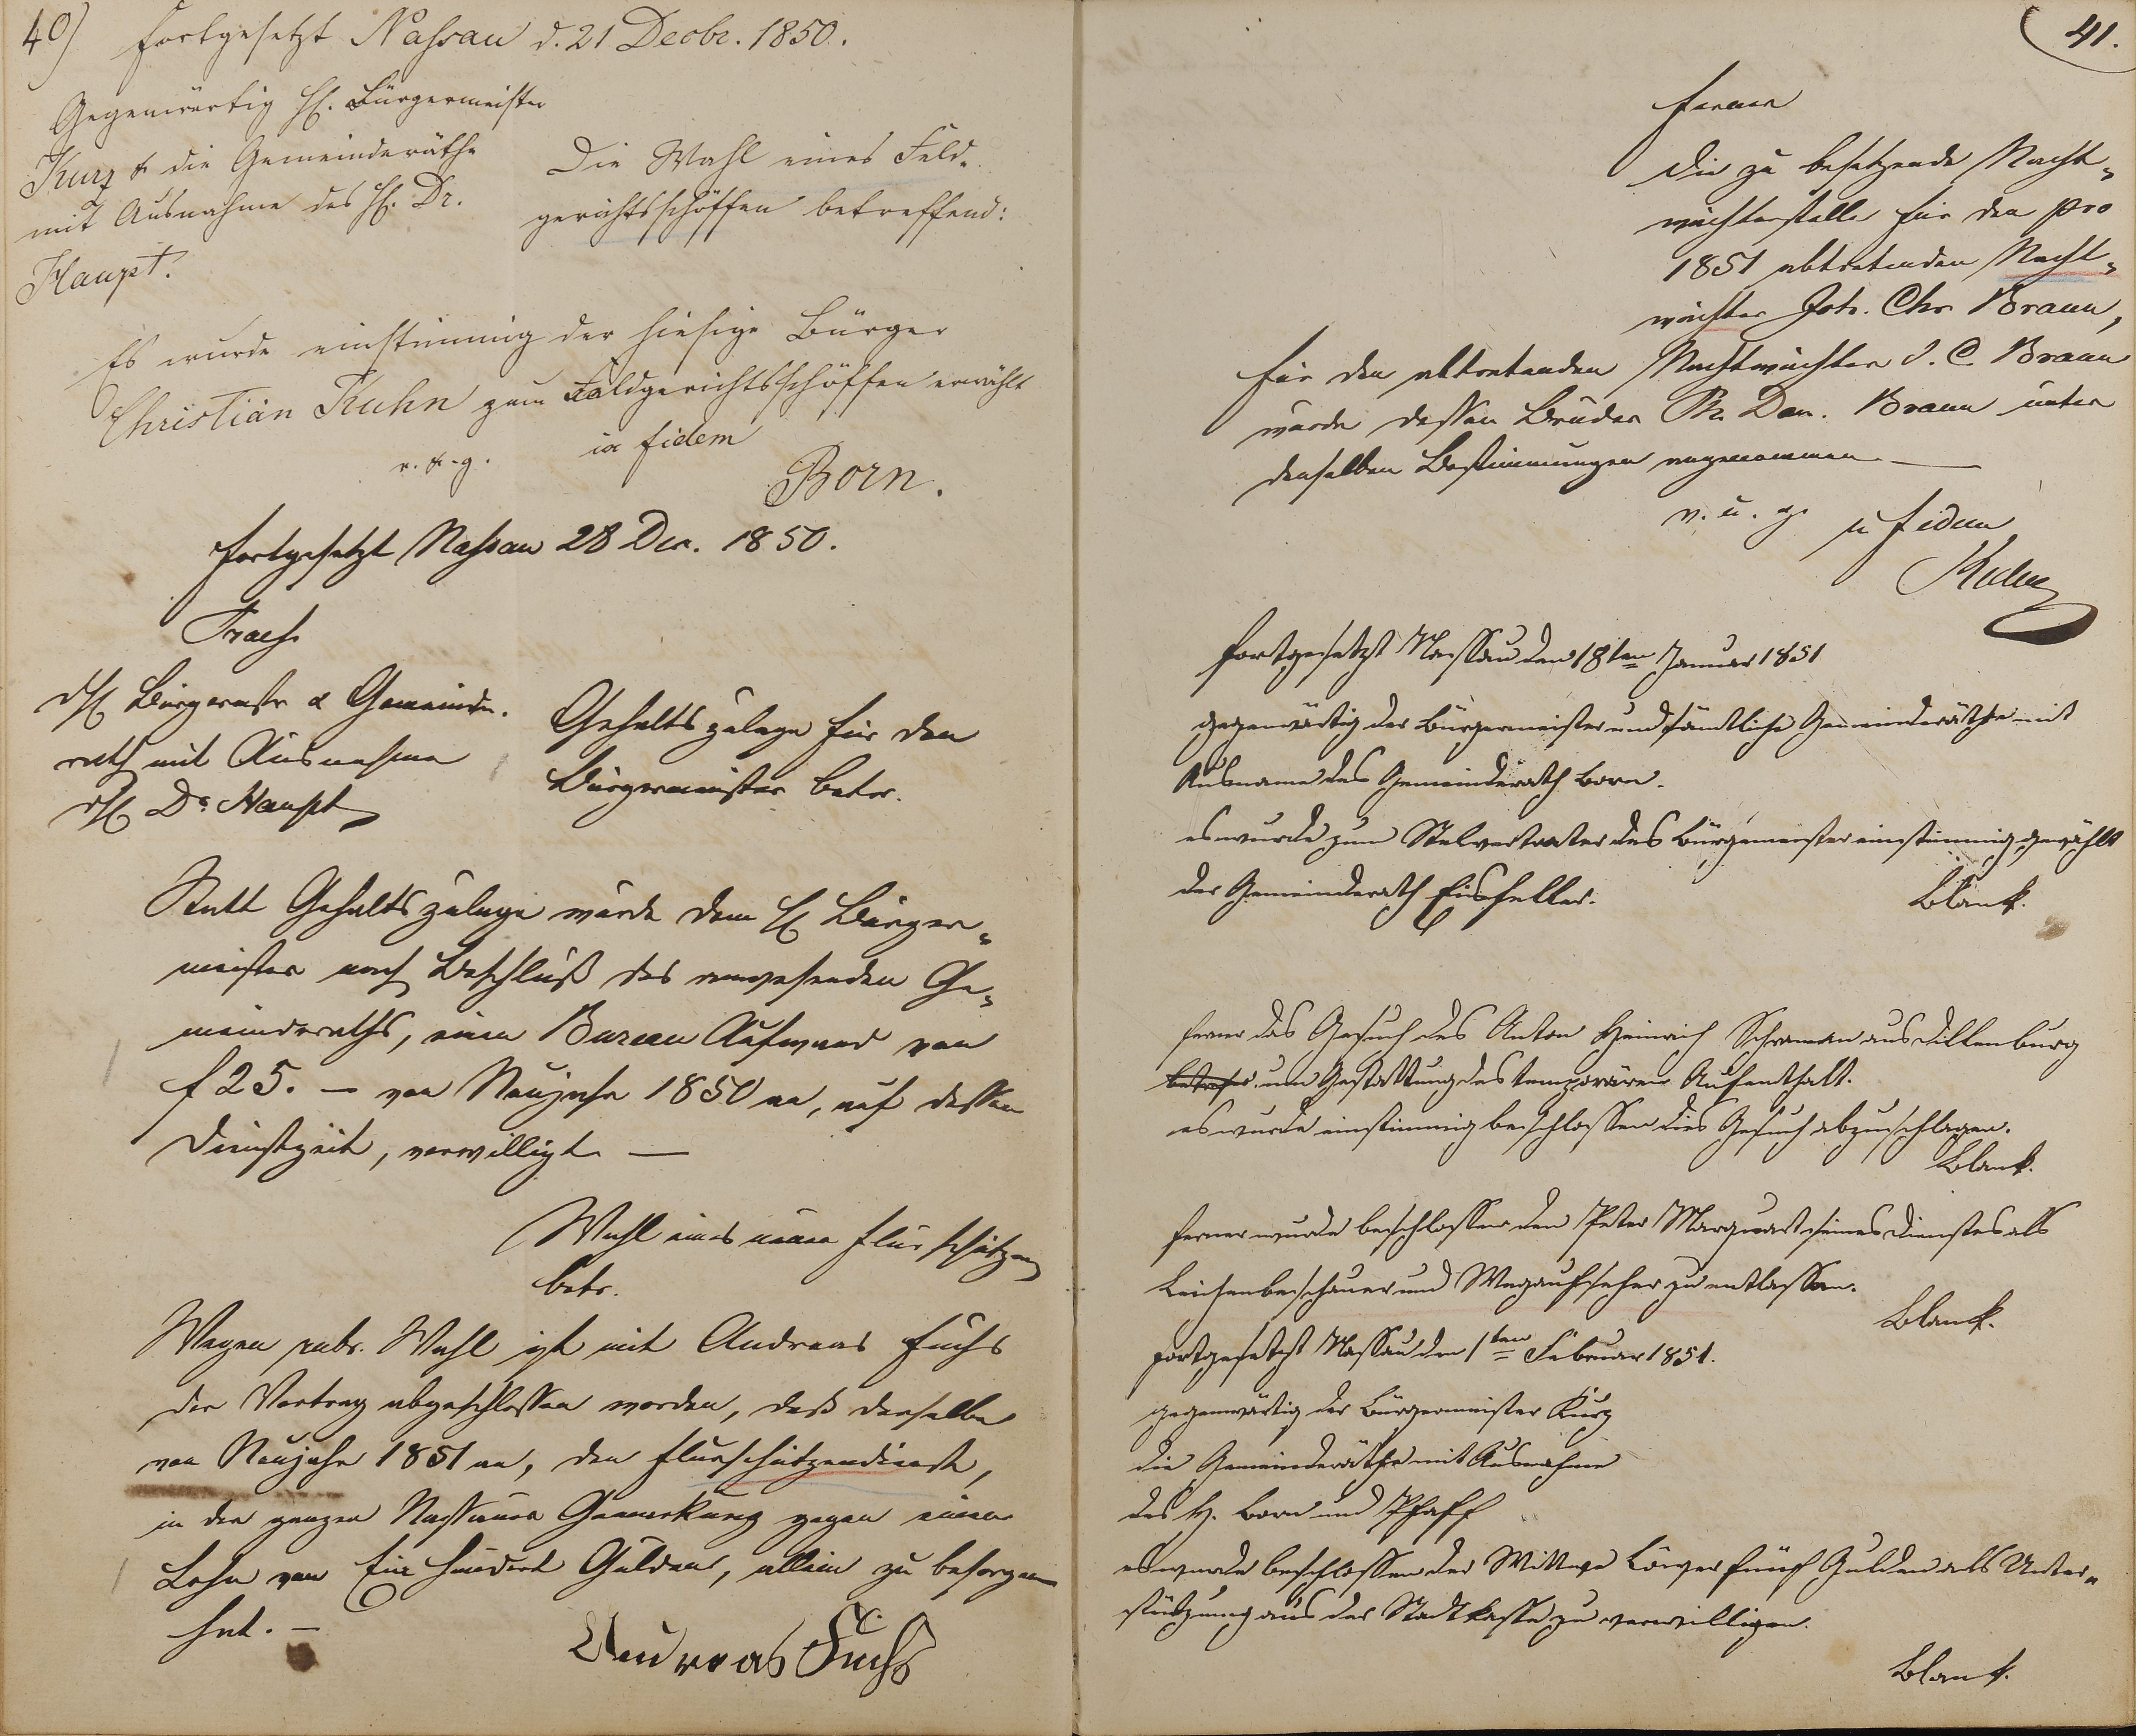 40)
fortgesetzt Nassau d. 21 Decbr. 1850.
Gegenwärtig H. Bürgermeister
Kurz & die Gemeinderäthe
mit Ausnahme des H. Dr.
Haupt.
Die Wahl eines Feld-
gerichtsschöffen betreffend:
Es wurde einstimmig der hiesige Bürger
Christian Kuhn zum Feldgerichtsschöffen erwählt
v. & g. in fidem
Born.
fortgesetzt Nassau 28 Dec. 1850.
H Bürgermstr & Gemeinde-
rath mit Ausnahme
H Dr Haupt
Gehaltszulage für den
Bürgermeister betr.
Statt Gehaltszulage wurde dem H Bürger-
meister nach Beschluß des anwesenden Ge-
meinderaths, einen Bureau Aufwand von
f 25. – von Neujahr 1850 an, auf dessen
Dienstzeit, verwilligt. —
Wahl eines neuen Flurschützen
betr.
Wegen rubr. Wahl ist mit Andreas Fuchs
der Vertrag abgeschlossen worden, daß derselbe
von Neujahr 1851 an, den Flurschützendienst,
in der ganzen Nassauer Gemarkung gegen einen
Lohn von Ein hundert Gulden, allein zu besorgen
hat. –
Andreas Fuchs
41.
ferner
die zu besetzende Nacht-
wächterstelle für den pro
1851 abtretenden Nacht-
wächter Joh. Chr Braun,
für den abtretenden Nachtwächter J. C Braun
wurde dessen Bruder Ph. Dan. Braun unter
denselben Bestimmungen angenommen —
v. u. g. in fidem
Kuhn
fortgesetzt Nassau den 18ten Januar 1851
gegenwärtig der Bürgermeister und sämtliche Gemeinderäthe mit
Ausname des Gemeinderath Born.
es wurde zum Stelvertreter des Bürgemeister einstimmig gewählt
der Gemeinderath Eisfeller.
Blank.
ferner das Gesuch des Anton Heinrich Schramm aus Dillenburg
betrefend um Gestattung des temporären Aufenthalt.
es wurde einstimmig beschlossen dies Gesuch abzuschlagen.
Blank.
ferner wurde beschlossen den Peter Marquart seines Dienstes als
Leichenbeschauer und Wegaufseher zu entlassen.
Blank.
fortgesetzt Nassau den 1ten Februar 1851.
gegenwärtig der Bürgermeister Kurz
die Gemeinderäthe mit Ausnahme
des H. Born und Pfaff
es wurde beschlossen der Wittwe Löwer fünf Gulden als Unter-
stützung aus der Stadtkasse zu verwilligen.
Blank.